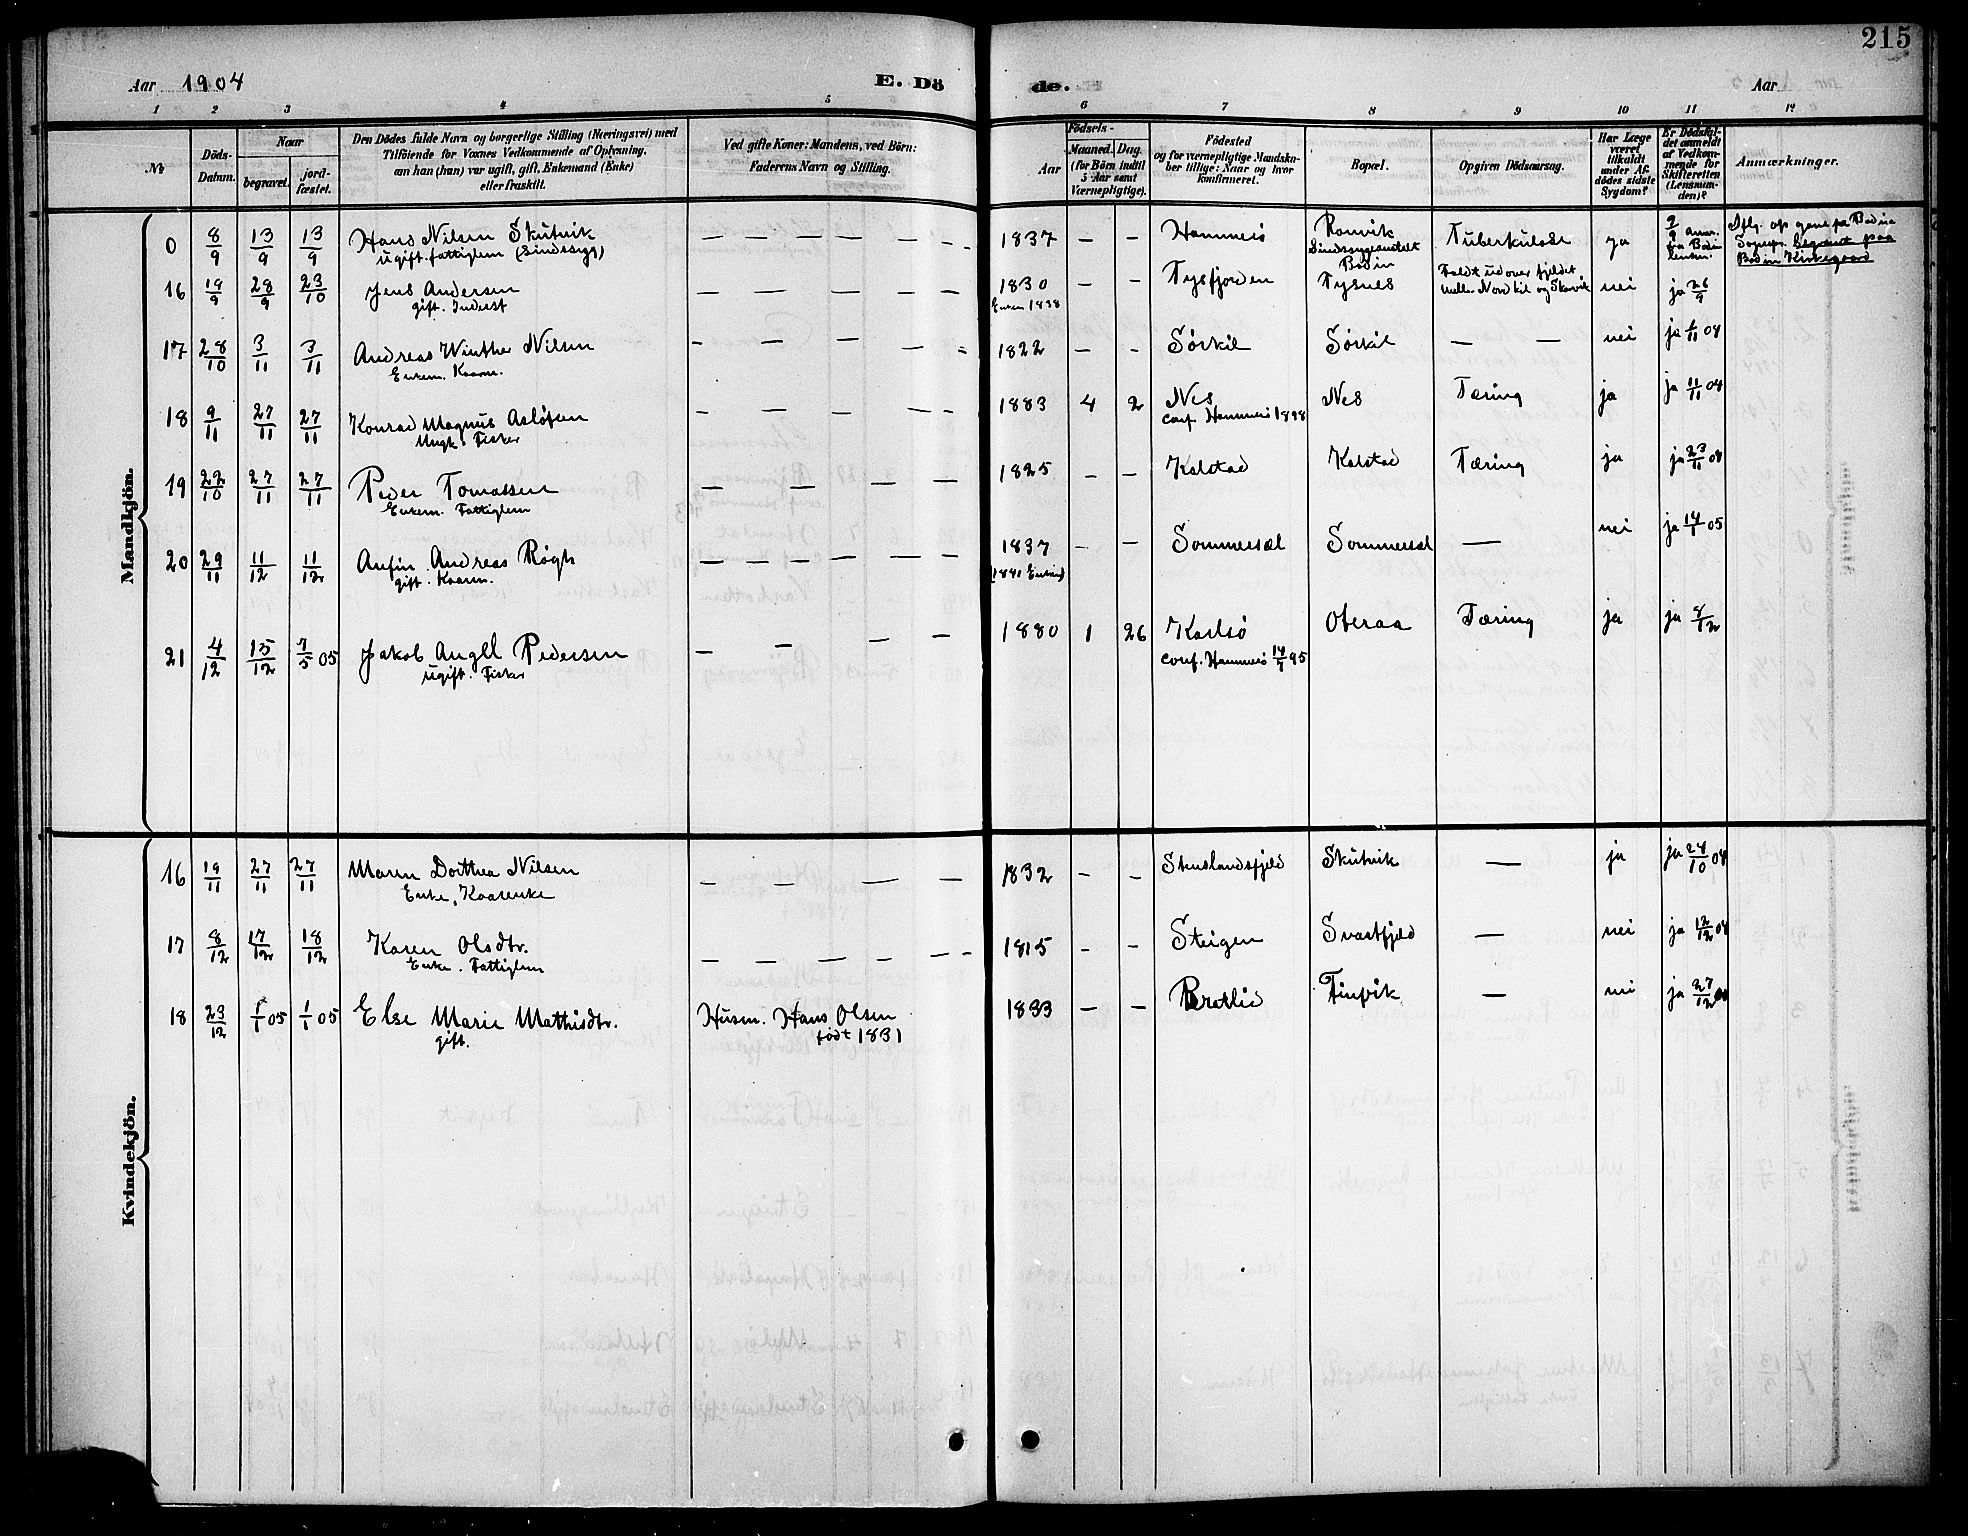 215
Aar 1904 E. Dö de. Aar
1 2 3 4 5 6 7 8 9 10 11 12
No. Döds-Datum. Naar begravet. jord-fæstet.
Den Dödes fulde Navn og borgerlige Stilling (Næringsvei) med
Tilföiende for Voxnes Vedkommende af Oplysning,
om han (hun) var ugift, gift, Enkemand (Enke)
eller fraskilt.
Ved gifte Koner: Mandens, ved Börn:
Faderens Navn og Stilling.
Födsels-
Aar Maaned. Dag.
(for Börn indtil
5 Aar samt
Værnepligtige).
Födested
og for værnepligtige Mandska-
ber tillige: Naar og hvor
konfirmeret.
Bopæl.
Opgiven Dödsaarsag.
Har Læge
været
tilkaldt
under Af-
dödes sidste
Sygdom?
Er Dödsfal-
det anmeldt
af Vedkom-
mende for
Skifteretten
(Lensman-
den)?
Anmærkninger.
Mandkjön.
0 8/9 13/9 13/9 Hans Nilsen Skutvik — — — — — — 1837 — — Hammerö Rønvik Tuberkulose ja 2/9 anm.
ugift. fattiglem (sindssyg) Sindssygeasyl fra Bodin
Bodin
Sognepr. Begravet paa
Bodin Kirkegaard
16 19/9 28/9 23/10 Jens Andersen — — — — — — 1830 — — Tysfjorden Tysnes Faldt ud over fjeldet nei ja 26/9
gift. Inderst Enken 1838 mell. Nordkil og Skarvik
17 28/10 3/11 3/11 Andreas Winther Nilsen — — — — — 1822 — — Sørkil Sørkil — — nei ja 1/11 04
Enkem. Kaarm.
18 9/11 27/11 27/11 Konrad Magnus Asløfsen — — — — — 1883 4 2 Nes Nes Tæring ja ja 11/11 04
Ungk. Fisker conf. Hammerö 1898
19 22/10 27/11 27/11 Peder Tomassen — — — — 1825 — — Kalstad Kalstad Tæring ja ja 23/11 04
Enkem. Fattiglem
20 29/11 11/12 11/12 Anfin Andreas Røgh — — — — — — 1837 — — Sommersel Sommersel — nei ja 14/1 05
gift. Kaarm. (1841 Enken)
21 4/12 15/12 7/5 05 Jakob Angel Pedersen — — — — 1880 1 26 Karlsö Oteraa Tæring ja ja 8/12
ugift. Fisker conf. Hammerö 14/7 95
Kvindekjön.
16 19/11 27/11 27/11 Maren Dorthea Nilsen — — — — 1832 — — Stenslandsfjeld Skutvik — ja ja 24/10 04
Enke, Kaarenke
17 8/12 17/12 18/12 Karen Olsdtr. — — — — — — 1815 — — Steigen Svartfjeld — nei ja 12/12 04
Enke. Fattiglem
18 23/12 1/1 05 1/1 05 Else Marie Mathisdtr. Husm. Hans Olsen 1833 — — Bratlid Finvik — nei ja 27/12 04
gift. født 1831